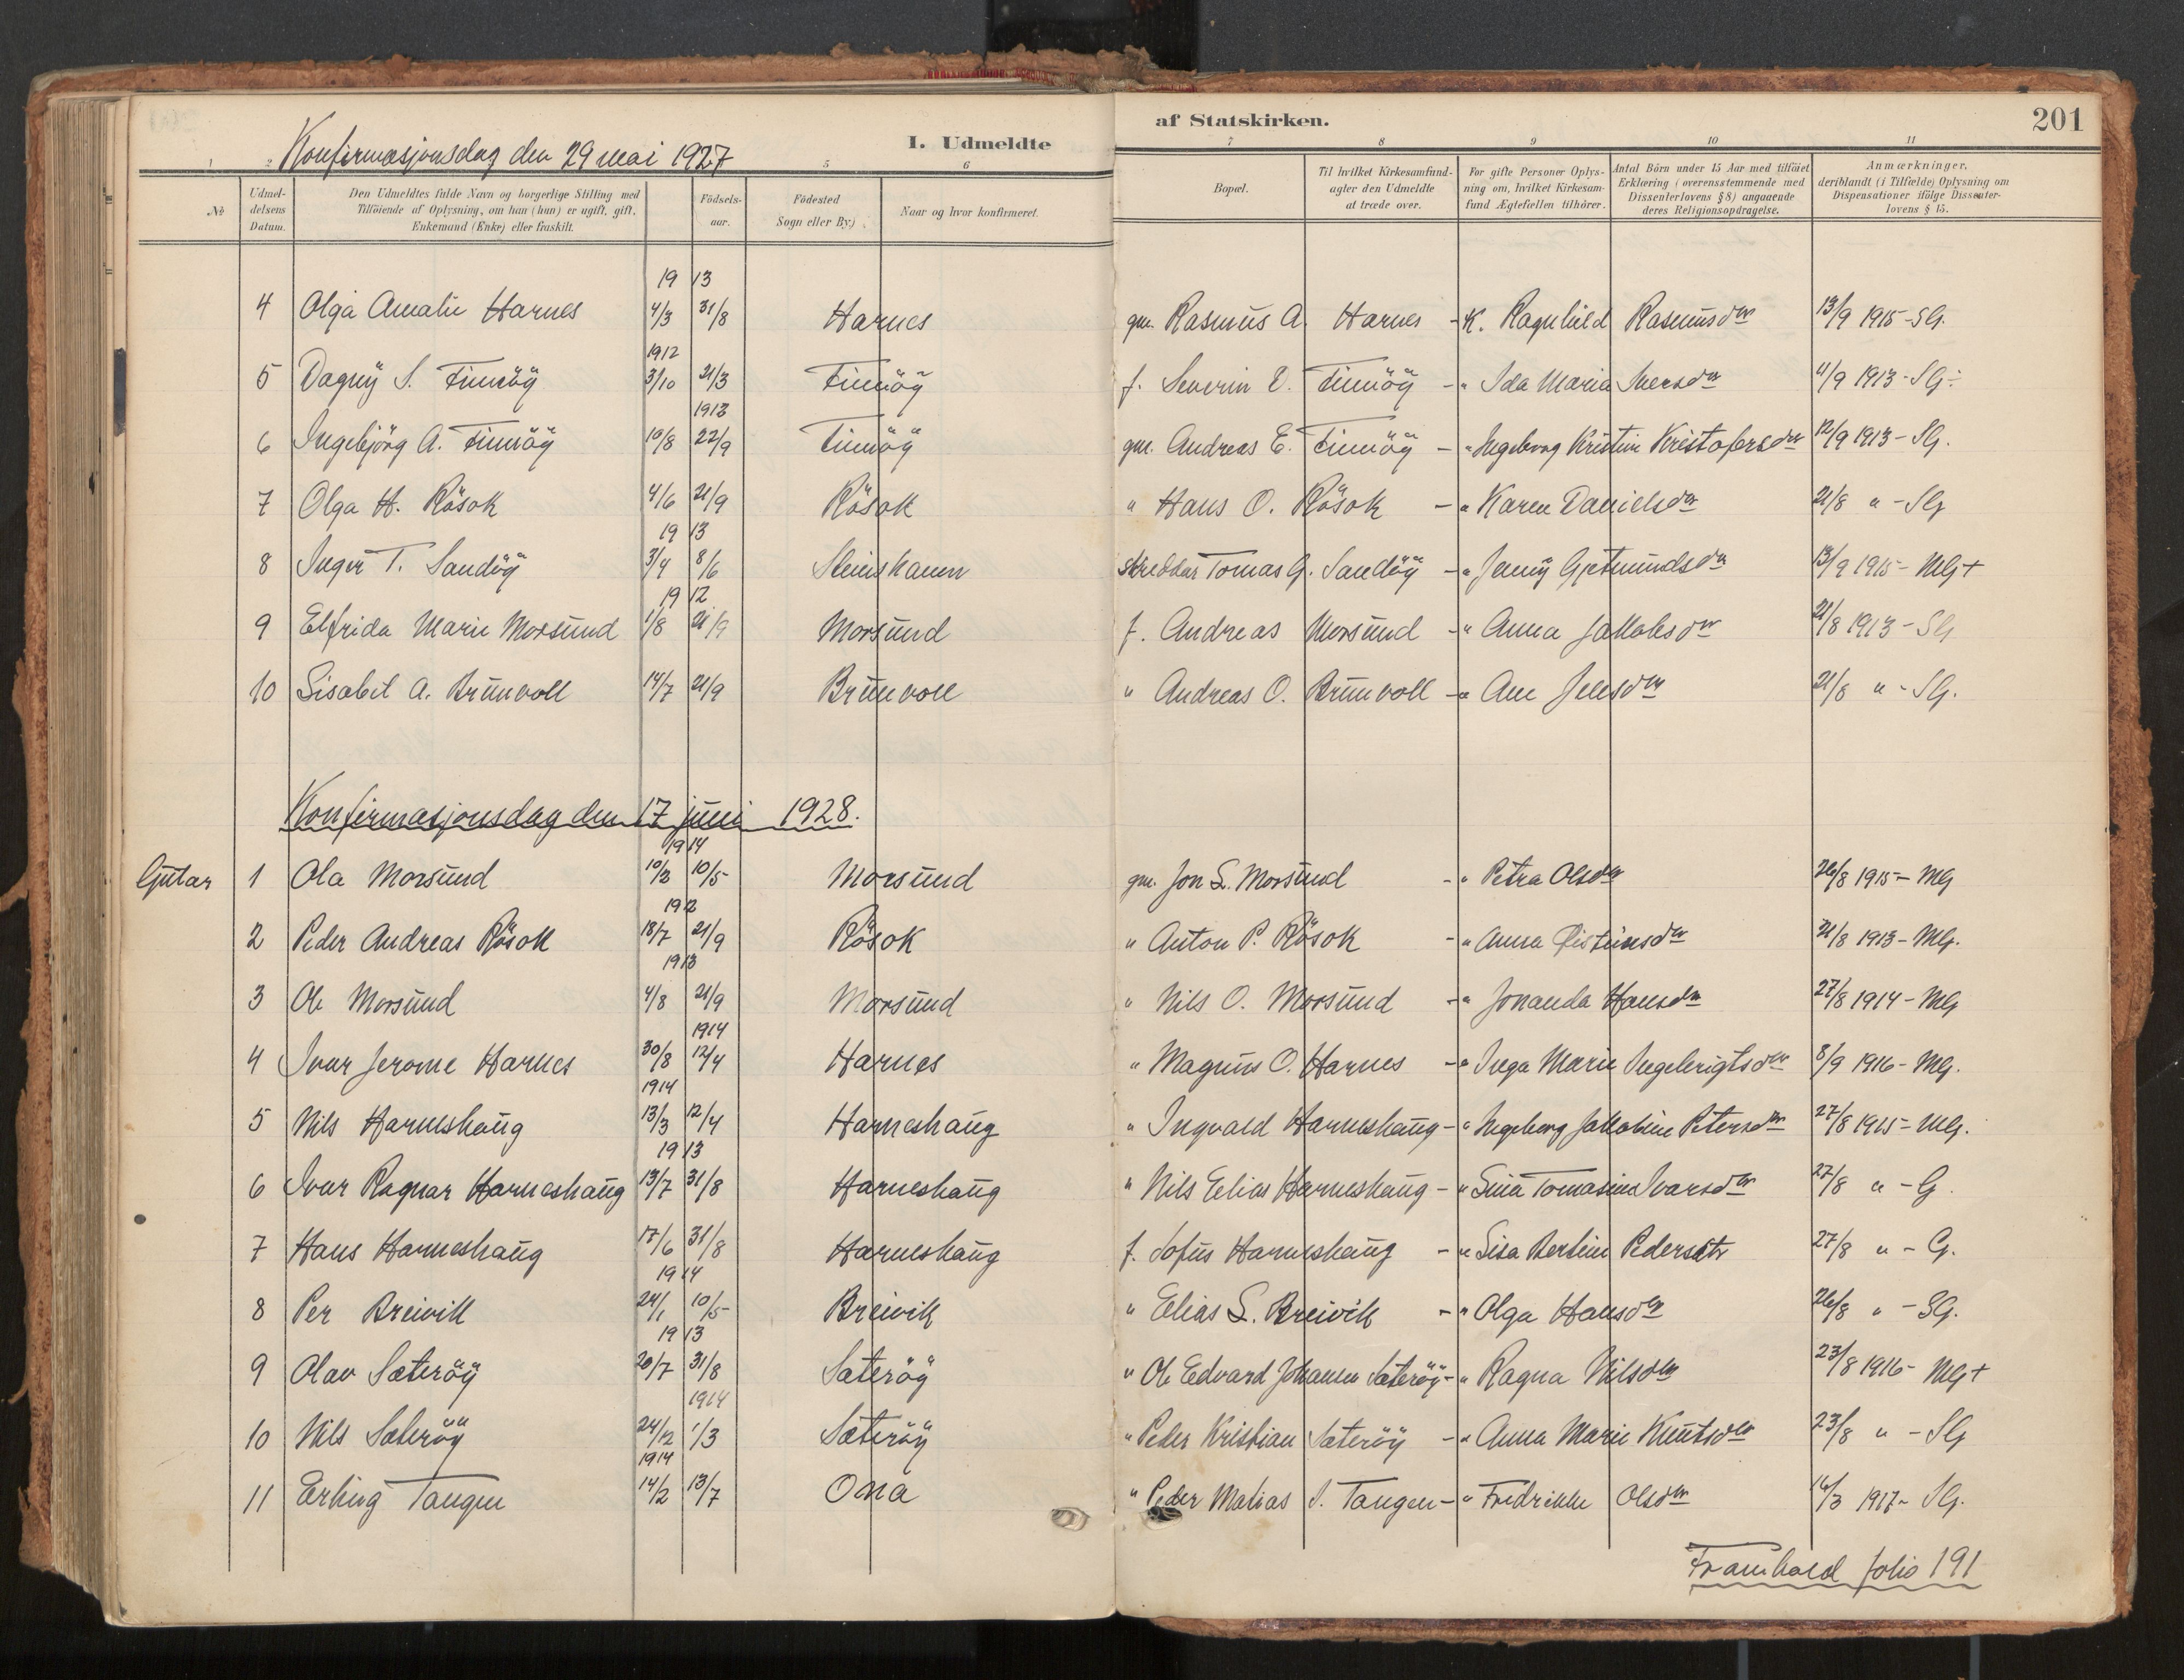 Konfirmasjonsdag den 29 mai 1927 I. Udmeldte af Statskirken. 201
1 2 5 6 7 8 9 10 11
№ Udmeldelsens Datum. Den Udmeldtes fulde Navn og borgerlige Stilling med Tilføiende af Oplysning, om han (hun) er ugift, gift, Enkemand (Enke) eller fraskilt. Fødselsaar. Fødested Sogn eller By) Naar og hvor konfirmeret. Bopæl. Til hvilket Kirkesamfund agter den Udmeldte at træde over. For gifte Personer Oplysning om, hvilket Kirkesamfund Ægtefællen tilhører. Antal Børn under 15 Aar med tilføiet Erklæring (overensstemmende med Dissenterlovens § 8) angaaende deres Religionsopdragelse. Anmærkninger, deriblandt (i Tilfælde) Oplysning om Dispensationer ifølge Dissenterlovens § 15.
1913
4 Olga Amalie Harnes 4/3 31/8 Harnes gm. Rasmus A. Harnes - K. Ragnhild Rasmusdtr 13/9 1915 - SG.
1912
5 Dagny S. Finnöy 3/10 21/3 Finnöy f. Severin E. Finnöy - " Ida Maria Iversdtr 4/9 1913 - SG.
1913
6 Ingebjörg A. Finnöy 10/8 22/9 Finnöy gm. Andreas E. Finnöy - " Ingeborg Kristine Kristofersdtr 12/9 1913 - SG.
7 Olga H. Rösok 4/6 21/9 Rösok " Hans O. Rösok - " Karen Danielsdtr 21/8 " - SG
1913
8 Inger T. Sandöy 3/4 8/6 Steinshamn skreddar Tomas G. Sandöy - " Jenny Gjetmundsdtr 13/9 1915 - MG+
1912
9 Elfrida Marie Morsund 1/8 21/9 Morsund f. Andreas Morsund - " Anna Jakobsdtr 21/8 1913 - SG
10 Lisabet A. Brunvoll 14/7 21/9 Brunvoll " Andreas O. Brunvoll - " Ane Jensdtr 21/8 " - SG.
Konfirmasjonsdag den 17 juni 1928.
1914
Gutar 1 Ola Morsund 10/2 10/5 Morsund gm. Jon L. Morsund - " Petra Olsdtr 26/8 1915 - MG
1912
2 Peder Andreas Rösok 18/7 21/9 Rösok " Anton P. Rösok - " Anna Eisteinsdtr 21/8 1913 - MG.
1913
3 Ole Morsund 4/8 21/9 Morsund " Nils O. Morsund - " Jonanda Hansdtr 27/8 1914 - MG
1914
4 Ivar Jerome Harnes 30/8 12/4 Harnes " Magnus O. Harnes - " Inga Marie Ingebrigtsdtr 8/9 1916 - MG.
1914
5 Nils Harneshaug 13/3 12/4 Harneshaug " Ingvald Harneshaug - " Ingeborg Jakobine Petersdtr 27/8 1915 - MG.
1913
6 Ivar Ragnar Harneshaug 13/7 31/8 Harneshaug " Nils Elias Harneshaug - " Sina Tomasine Ivarsdtr 27/8 " - G.
7 Hans Harneshaug 17/6 31/8 Harneshaug f. Sofus Harneshaug - " Lisa Bertine Pedersdtr 27/8 " - G.
1914
8 Per Breivik 24/1 10/5 Breivik " Elias L. Breivik - " Olga Hansdtr 26/8 " - SG.
1913
9 Olav Sæteröy 20/7 31/8 Sæteröy " Ole Edvard Johansen Sæteröy - " Ragna Nilsdtr 23/8 1916 - MG+
1914
10 Nils Sæteröy 24/12 1/3 Sæteröy " Peder Kristian Sæteröy - " Anna Marie Knutsdtr 23/8 " - SG
1914
11 Erling Tangen 14/2 13/7 Ona " Peder Matias S. Tangen - " Fredrikke Olsdtr 16/3 1917 - SG.
Framhald folio 191